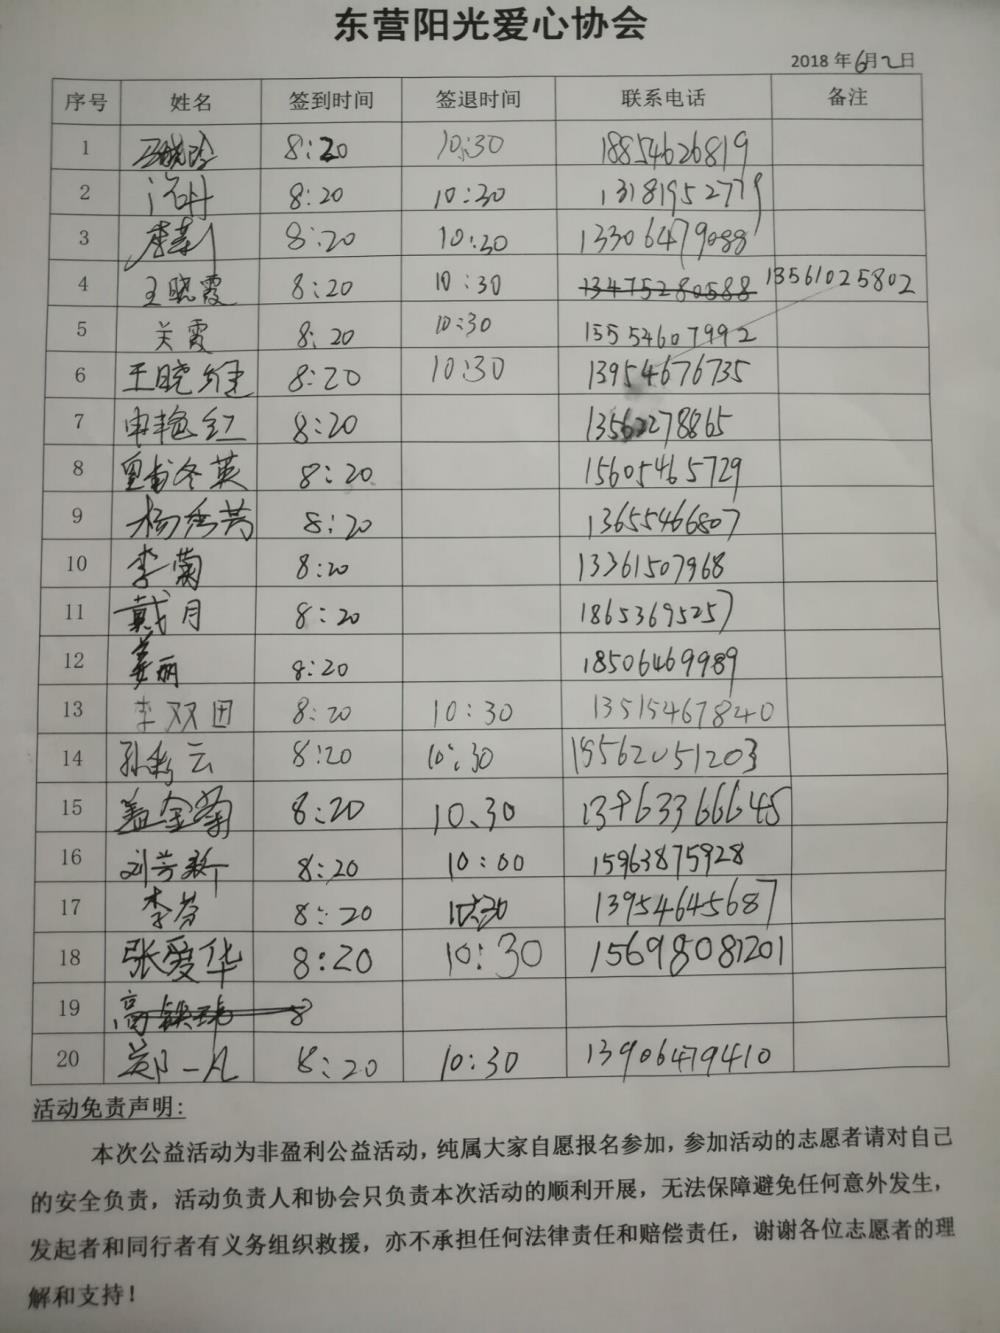 东营阳光爱心协会
2018 年 6月2日
序号 姓名 签到时间 签退时间 联系电话 备注
1 8:20 10:30 18854626819
2 8:20 10:30 13181952779
3 8:20 10:30 13306479088
4 王晓霞 8:20 10:30 13475280588 13561025802
5 关霞 8:20 10:30 15554607992
6 王晓健 8:20 10:30 13954676735
7 申艳红 8:20 13562278865
8 皇甫冬英 8:20 15605465729
9 杨秀芳 8:20 13655466807
10 李菊 8:20 13361507968
11 戴月 8:20 18653695257
12 姜丽 8:20 18506469989
13 李双田 8:20 10:30 13515467840
14 孙彩云 8:20 10:30 19562051203
15 盖金菊 8:20 10.30 13963366645
16 刘芳 8:20 10:00 15963875928
17 李芬 8:20 10:30 13954645687
18 张爱华 8:20 10:30 15698081201
19 高 8
20 郑一凡 8:20 10:30 13906479410
活动免责声明:
本次公益活动为非盈利公益活动，纯属大家自愿报名参加，参加活动的志愿者请对自己
的安全负责，活动负责人和协会只负责本次活动的顺利开展，无法保障避免任何意外发生，
发起者和同行者有义务组织救援，亦不承担任何法律责任和赔偿责任，谢谢各位志愿者的理
解和支持！